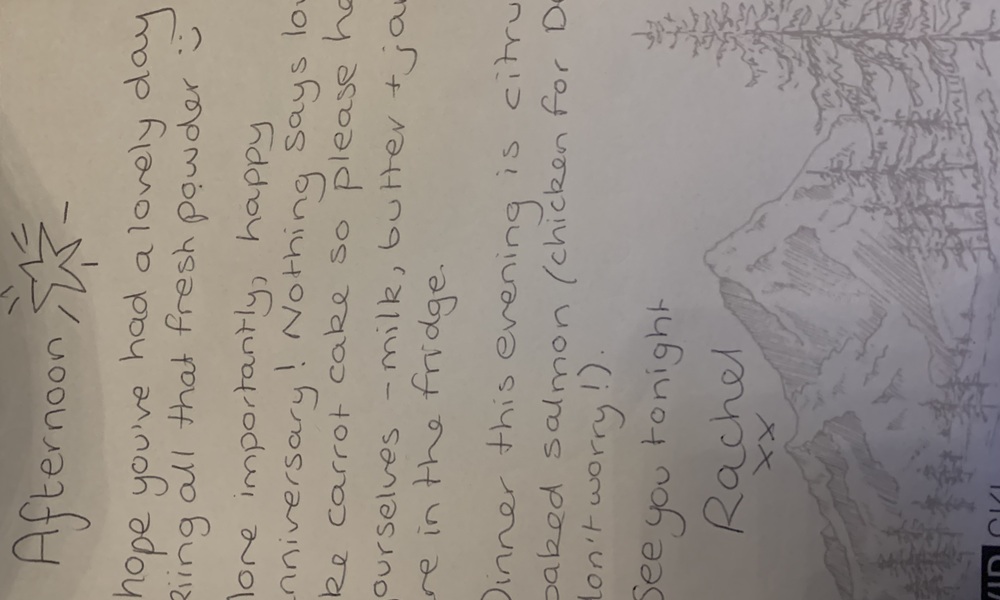 Afternoon
hope you've had a lovely day
kiing all that fresh powder :)
lore importantly, happy
nniversary! Nothing says lo
ke carrot cake so please he
ourselves - milk, butter + ja
re in the fridge.
Dinner this evening is citru
baked salmon (chicken for D
don't worry!).
See you tonight
Rachel
xx